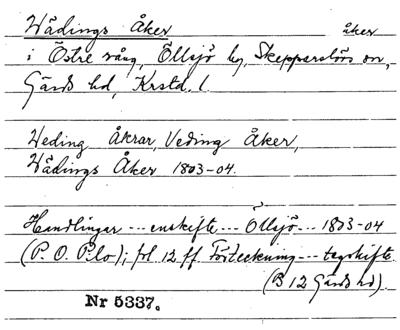 Wädings Åker åker
i Östre vång, Öllsjö by, Skepparslövs sn,
Gärds hd, Krstd. l.
Weding Åkrar, Veding Åker,
Wädings Åker 1803-04.
Handlingar --- enskifte --- Öllsjö --- 1803-04
(P. O. P:lo); fol. 12 ff. Förteckning --- tegskifte
(B 12 Gärds hd).
Nr 5337.